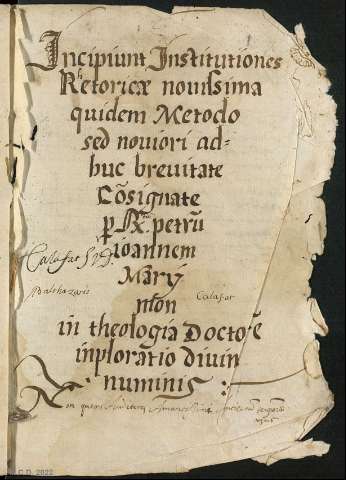 Incipiunt Institutiones
Retoricæ novissima
quidem Metodo
sed noviori ad-
huc brevitate
Cõsignate
petrũ
ioannem
Mary
mon
in theologia Doctorẽ
inploratio divin
numinis
Calafat
Balthazaris
Calafat
C.D. 2022